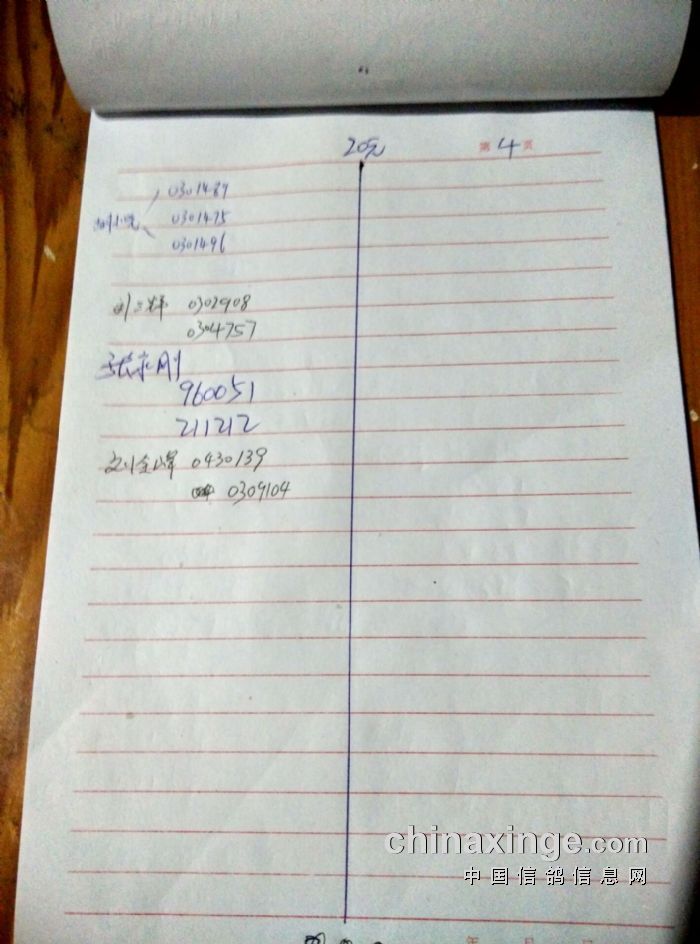 20元 第4页
0301489
0301475
0301496
0302908
0304757
张永刚
960051
211212
刘金峰 0430139
0309104
chinaxinge.com
中国信鸽信息网
年 月 日